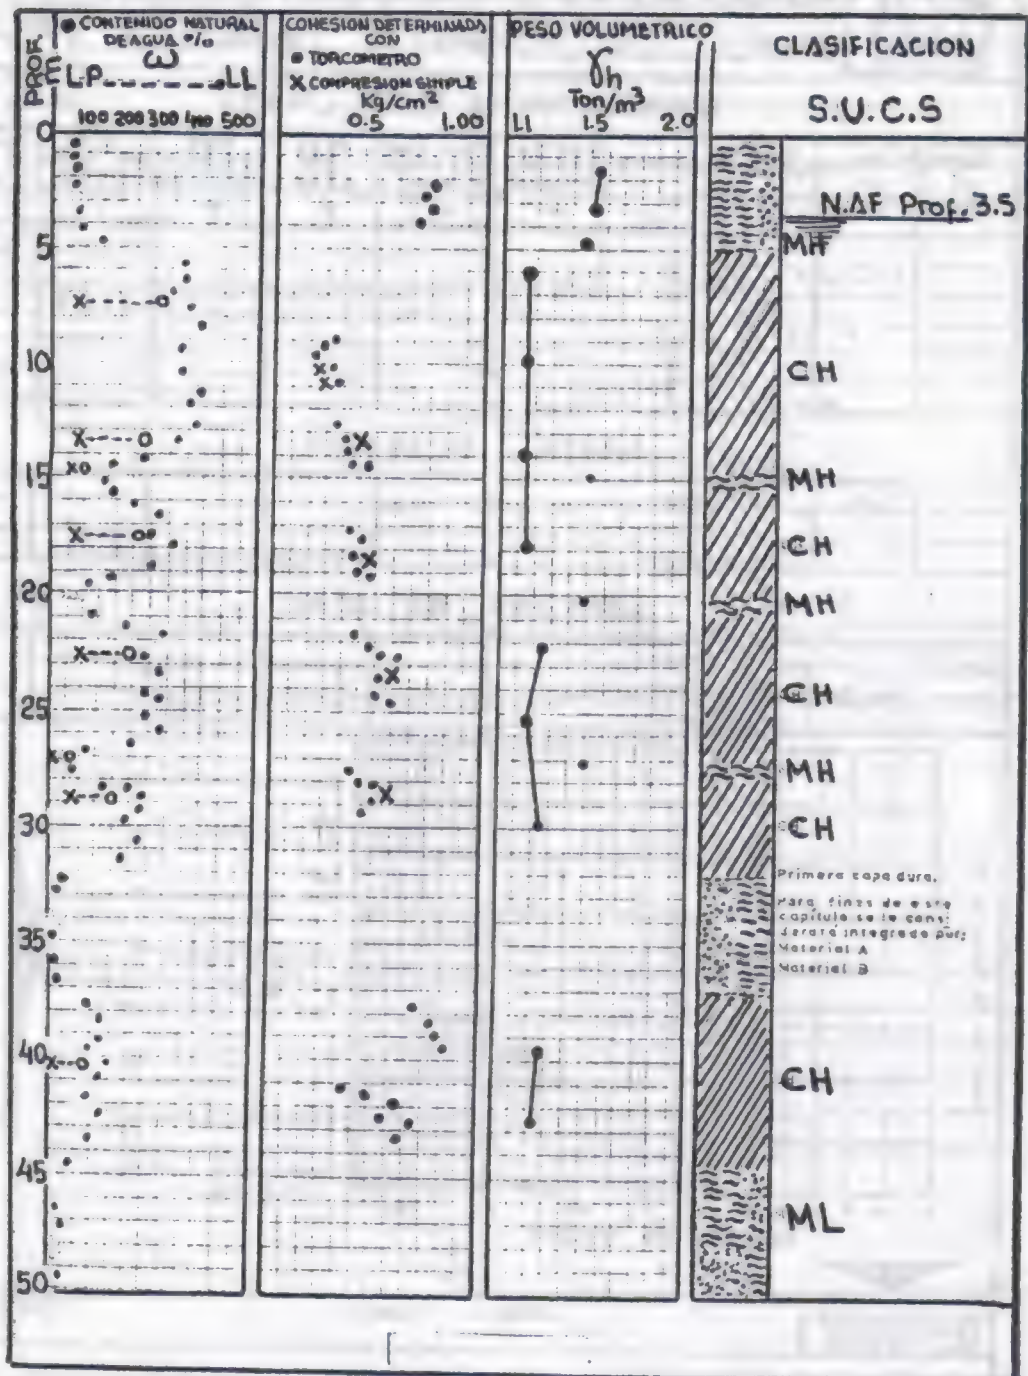 PROF.
● CONTENIDO NATURAL
DE AGUA %
ω
L.P.-----.LL
100 200 300 400 500
COHESION DETERMINADA
CON
● TORCOMETRO
X COMPRESION SIMPLE
Kg/cm²
0.5 1.00
PESO VOLUMETRICO
γh
Ton/m³
1.1 1.5 2.0
CLASIFICACION
S.U.C.S
0
5
10
15
20
25
30
35
40
45
50
N.A.F Prof. 3.5
MH
CH
MH
CH
MH
CH
MH
CH
Primera capa dura.
Para fines de este
capitulo se le cons
derará integrado por;
Material A
Material B
CH
ML